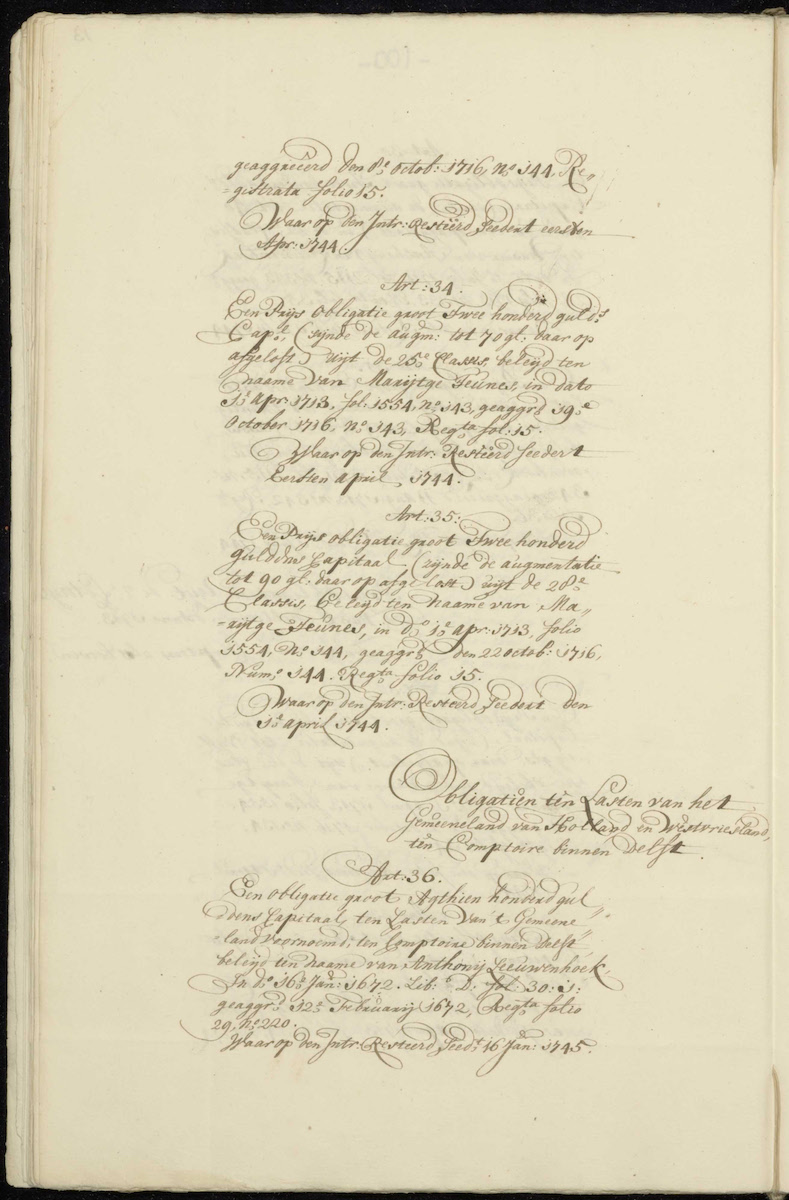 geaggreerd den 8e. octob: 1716, No. 144. Re„
=gistrata folio 15.
Waar op den Intr: Resteerd seedert eersten
Apr: 1744.
Art: 34.
Een Prijs obligatie groot Twee honderd guld.s
Cap.l, (sijnde de augm: tot 70 gl: daar op
afgelost) uijt de 25.e Classis, beleijd ten
naame van Maaijtge Teunes, in dato
1.e Apr: 1713, fol: 1554, no. 143, geaggr.d 19.e
October 1716, No. 143, Reg.ta fol: 15.
Waar op den Intr: Resteerd seedert
Eersten april 1744.
Art: 35:
Een Prijs obligatie groot Twee honderd
guldens Capitaal (zijnde de augmentatie
tot 90 gl: daar op afgelost) uijt de 28.e
Classis, beleijd ten naame van Ma„
=aijtge Teunes, in d.o 1.e Apr: 1713, folio
1554, No. 144, geaggr.d den 22 octob: 1716,
Num.o 144. Reg.ta folio 15.
Waar op den Intr: Resteerd, seedert den
1.e april 1744.
Obligatien ten Lasten van het
Gemeeneland van Holland en Westvriesland,
ten Comptoire binnen Delft.
Art: 36.
Een obligatie groot Agthien honderd gul„
dens Capitaal, ten Lasten van 't Gemeene„
=land voornoemd; ten Comptoire binnen Delft
beleijd ten naame van Anthonij Leeuwenhoek,
In d.o 16.e Jan: 1672. Lib: D: fol: 30: 1:
geaggr.d 12.e Februarij 1672, Reg.ta folio
29, No. 220.
Waar op den Intr: Resteerd, seed.t 16 Jan: 1745.